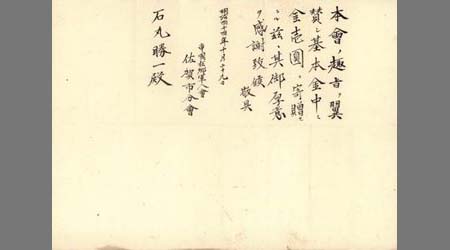 本會ノ趣旨ヲ翼
賛シ基本金中ニ
金壱圓ヲ寄贈セ
ラレ茲ニ其御厚意
ヲ感謝致候 敬具
明治四十四年十月二十九日
帝國在郷軍人會
佐賀市分會
石丸勝一殿